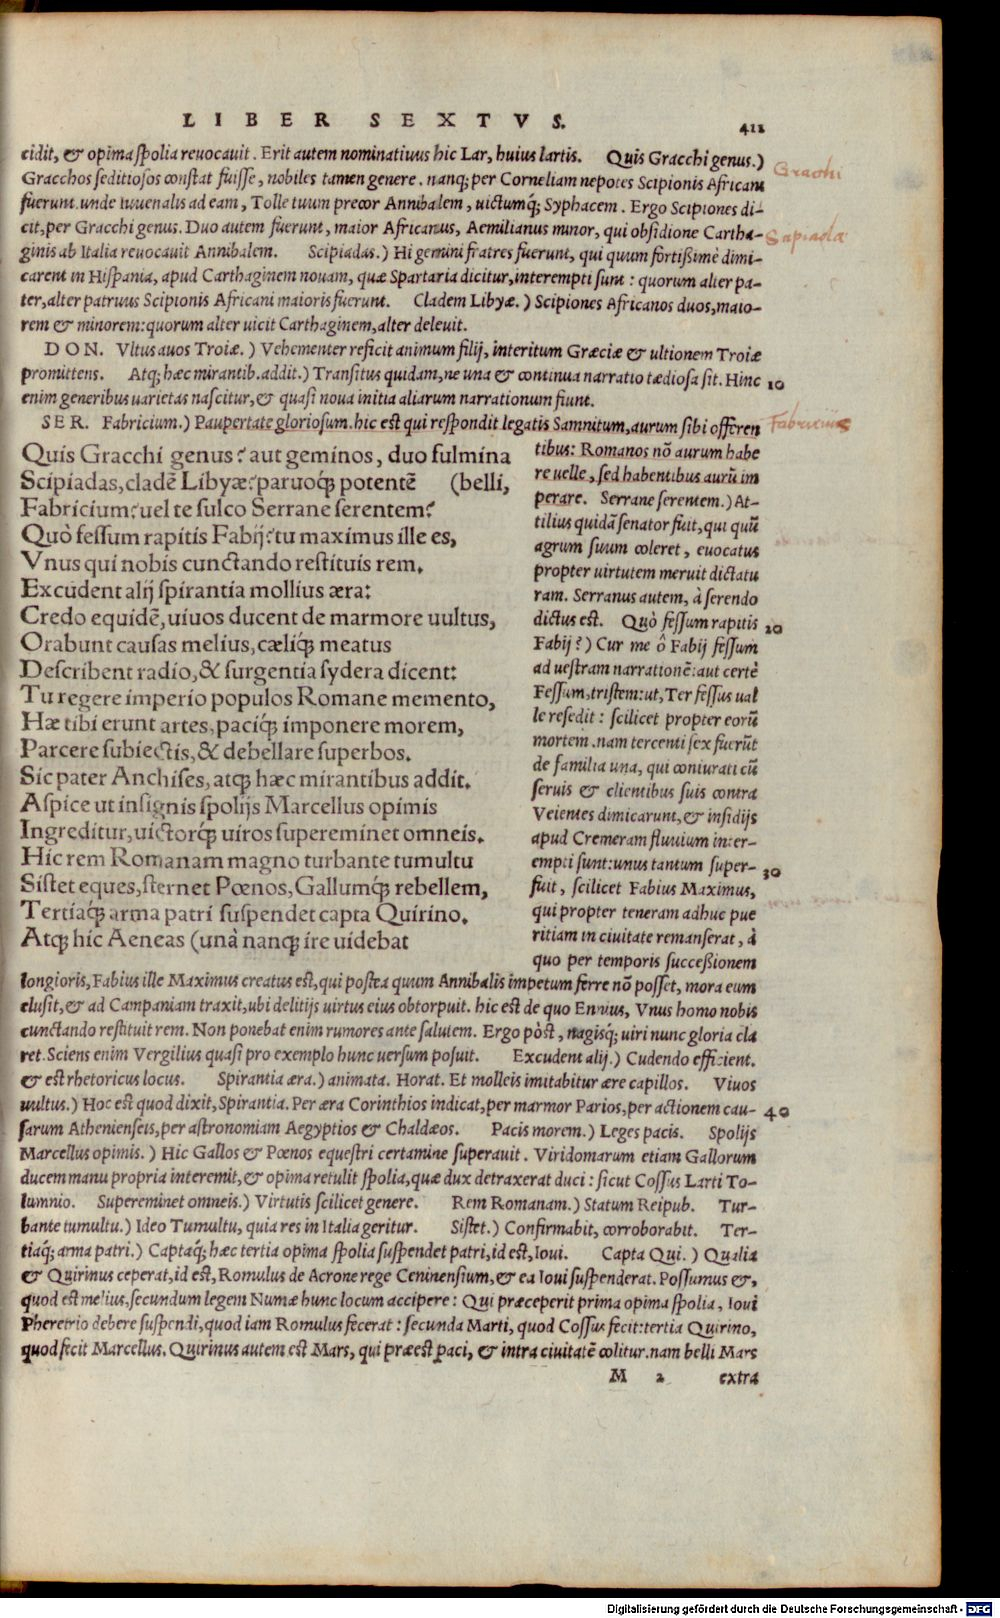 LIBER SEXTVS. 411
cidit, & opima spolia reuocauit. Erit autem nominatiuus hic Lar, huius lartis. Quis Gracchi genus.)
Gracchos seditiosos constat fuisse, nobiles tamen genere. nanq; per Corneliam nepotes Scipionis Africani
fuerunt. unde Iuuenalis ad eam, Tolle tuum precor Annibalem, uictumq́; Syphacem. Ergo Scipiones di-
cit, per Gracchi genus. Duo autem fuerunt, maior Africanus, Aemilianus minor, qui obsidione Cartha-
ginis ab Italia reuocauit Annibalem. Scipiadas.) Hi gemini fratres fuerunt, qui quum fortißimè dimi-
carent in Hispania, apud Carthaginem nouam, quæ Spartaria dicitur, interempti sunt: quorum alter pa-
ter, alter patruus Scipionis Africani maioris fuerunt. Cladem Libyæ.) Scipiones Africanos duos, maio-
rem & minorem: quorum alter uicit Carthaginem, alter deleuit.
DON. Vltus auos Troiæ.) Vehementer reficit animum filij, interitum Græciæ & ultionem Troiæ
promittens. Atq; hæc mirantib. addit.) Transitus quidam, ne una & continua narratio tædiosa sit. Hinc 10
enim generibus uarietas nascitur, & quasi noua initia aliarum narrationum fiunt.
SER. Fabricium.) Paupertate gloriosum. hic est qui respondit legatis Samnitum, aurum sibi offeren
Gracchi
Scipiada
Fabricius
Quis Gracchi genus? aut geminos, duo fulmina
Scipiadas, cladē Libyæ? paruoq́; potentē (belli,
Fabricium? uel te sulco Serrane serentem?
Quò fessum rapitis Fabij? tu maximus ille es,
Vnus qui nobis cunctando restituis rem.
Excudent alij spirantia mollius æra:
Credo equidē, uiuos ducent de marmore uultus,
Orabunt causas melius, cæliq́; meatus
Describent radio, & surgentia sydera dicent:
Tu regere imperio populos Romane memento,
Hæ tibi erunt artes, paciq́; imponere morem,
Parcere subiectis, & debellare superbos.
Sic pater Anchises, atq; hæc mirantibus addit.
Aspice ut insignis spolijs Marcellus opimis
Ingreditur, uictorq́; uiros supereminet omneis.
Hic rem Romanam magno turbante tumultu
Sistet eques, sternet Pœnos, Gallumq́; rebellem,
Tertiaq́; arma patri suspendet capta Quirino.
Atq; hic Aeneas (unà nanq; ire uidebat
tibus: Romanos nō aurum habe
re uelle, sed habentibus aurū im
perare. Serrane serentem.) At-
tilius quidā senator fuit, qui quū
agrum suum coleret, euocatus
propter uirtutem meruit dictatu
ram. Serranus autem, à serendo
dictus est. Quò fessum rapitis 20
Fabij?) Cur me ô Fabij fessum
ad uestram narrationē: aut certè
Fessum, tristem: ut, Ter fessus ual
le resedit: scilicet propter eorū
mortem. nam tercenti sex fuerūt
de familia una, qui coniurati cū
seruis & clientibus suis contra
Veientes dimicarunt, & insidijs
apud Cremeram fluuium inter-
empti sunt: unus tantum super- 30
fuit, scilicet Fabius Maximus,
qui propter teneram adhuc pue
ritiam in ciuitate remanserat, à
quo per temporis succeßionem
longioris, Fabius ille Maximus creatus est, qui postea quum Annibalis impetum ferre nō posset, mora eum
elusit, & ad Campaniam traxit, ubi delitijs uirtus eius obtorpuit. hic est de quo Ennius, Vnus homo nobis
cunctando restituit rem. Non ponebat enim rumores ante salutem. Ergo pòst, magisq́; uiri nunc gloria cla
ret. Sciens enim Vergilius quasi pro exemplo hunc uersum posuit. Excudent alij.) Cudendo efficient.
& est rhetoricus locus. Spirantia æra.) animata. Horat. Et molleis imitabitur ære capillos. Viuos
uultus.) Hoc est quod dixit, Spirantia. Per æra Corinthios indicat, per marmor Parios, per actionem cau- 40
sarum Athenienseis, per astronomiam Aegyptios & Chaldæos. Pacis morem.) Leges pacis. Spolijs
Marcellus opimis.) Hic Gallos & Pœnos equestri certamine superauit. Viridomarum etiam Gallorum
ducem manu propria interemit, & opima retulit spolia, quæ dux detraxerat duci: sicut Cossus Larti To-
lumnio. Supereminet omneis.) Virtutis scilicet genere. Rem Romanam.) Statum Reipub. Tur-
bante tumultu.) Ideo Tumultu, quia res in Italia geritur. Sistet.) Confirmabit, corroborabit. Ter-
tiaq́; arma patri.) Captaq́; hæc tertia opima spolia suspendet patri, id est, Ioui. Capta Qui.) Qualia
& Quirinus ceperat, id est, Romulus de Acrone rege Ceninensium, & ea Ioui suspenderat. Possumus &,
quod est melius, secundum legem Numæ hunc locum accipere: Qui præceperit prima opima spolia, Ioui
Pheretrio debere suspendi, quod iam Romulus fecerat: secunda Marti, quod Cossus fecit: tertia Quirino,
quod fecit Marcellus. Quirinus autem est Mars, qui præest paci, & intra ciuitatē colitur. nam belli Mars
M 2 extra
Digitalisierung gefördert durch die Deutsche Forschungsgemeinschaft - DFG